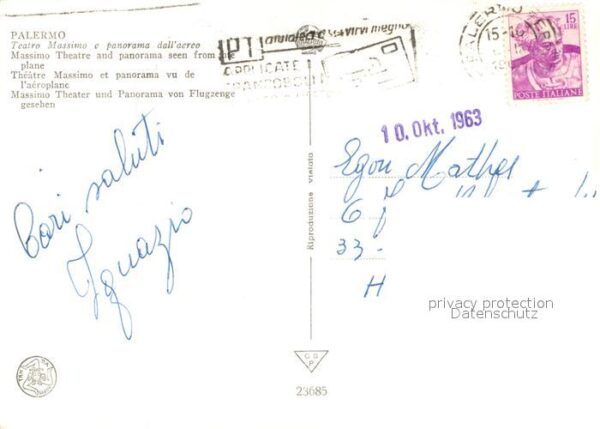 PALERMO
Teatro Massimo e panorama dall'aereo
Massimo Theatre and panorama seen from
plane
Théâtre Massimo et panorama vu de
l'aéroplane
Massimo Theater und Panorama von Flugzenge
gesehen
aiutateci a servirvi meglio
PT
APPLICATE
PALERMO
15-16
15
LIRE
POSTE ITALIANE
10. Okt. 1963
Cari saluti
Ignazio
Egon
6
33-
H
Riproduzione vietata
privacy protection
Datenschutz
G B
P
23685